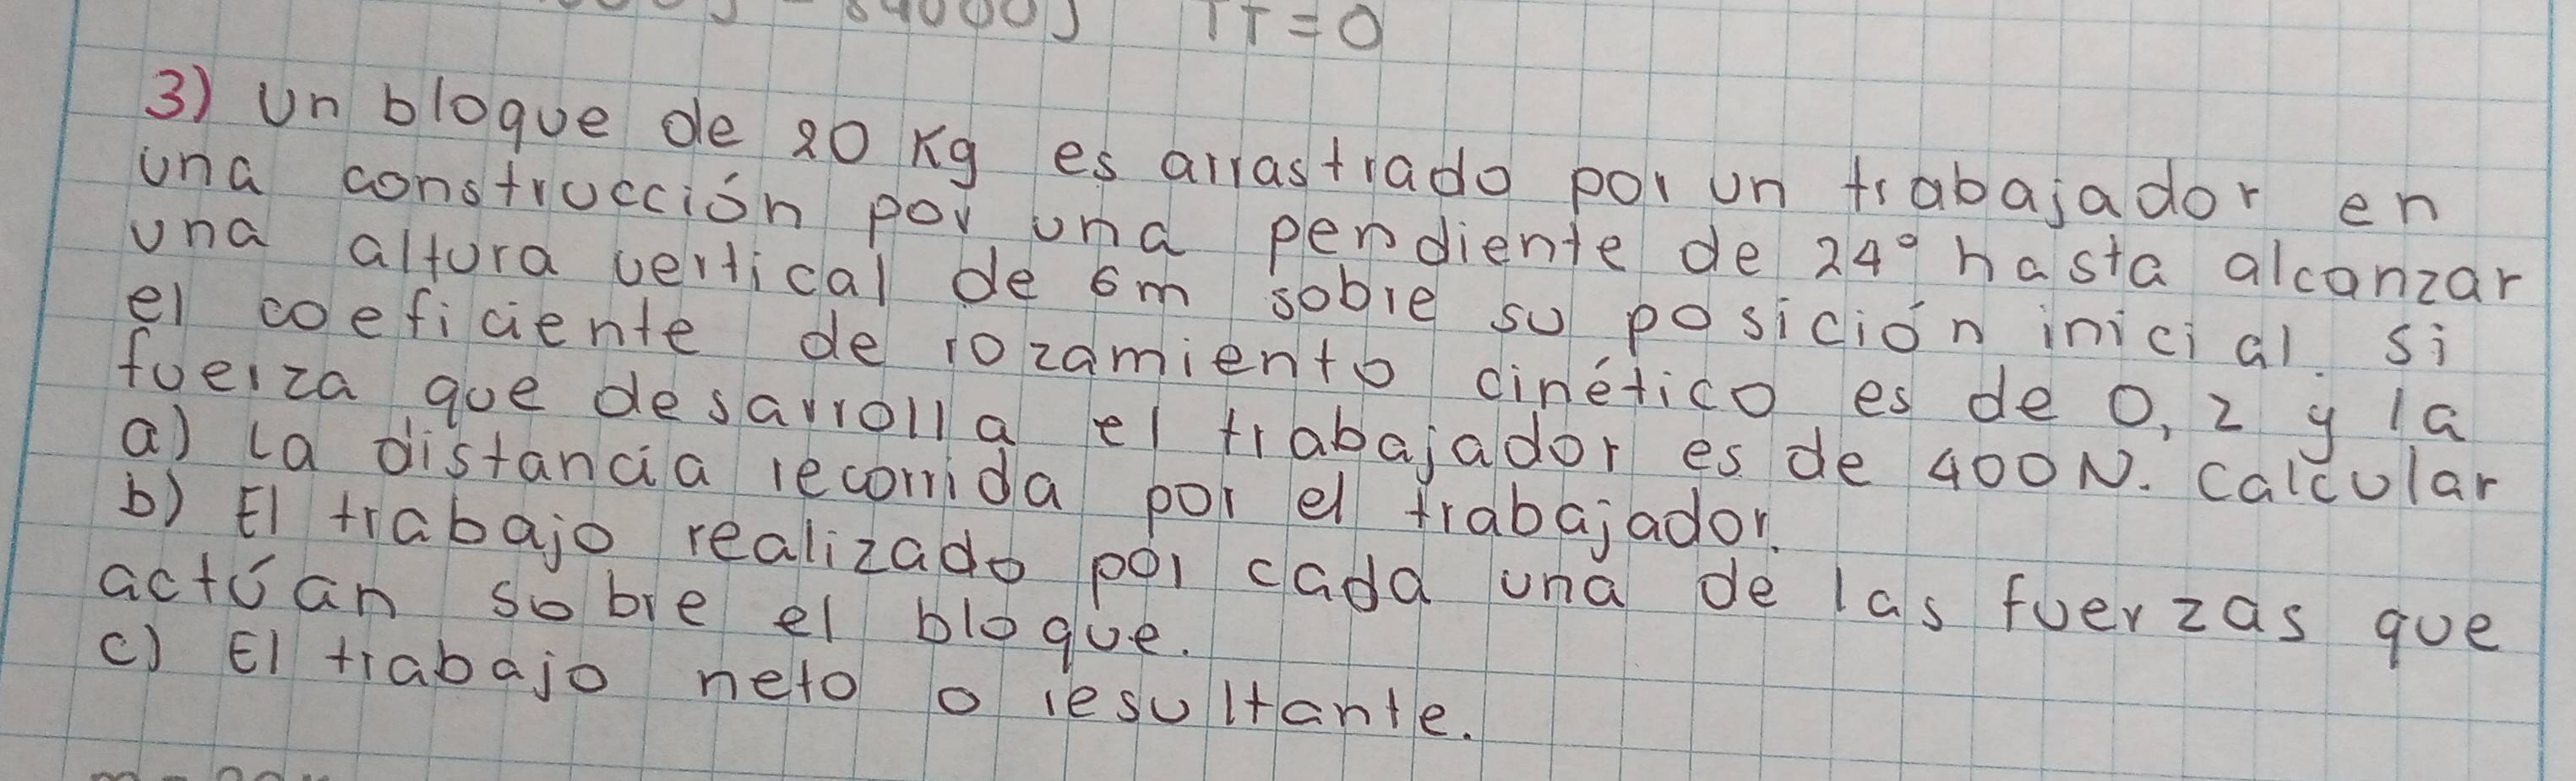 TT=0
3) Un bloque de 20 Kg es arrastrado por un trabajador en
una construcción por una pendiente de 24° hasta alcanzar
una altura vertical de 6m sobre su posición inicial. si
el coeficiente de rozamiento cinético es de 0,2 y la
fuerza que desarrolla el trabajador es de 400N. Calcular
a) La distancia recorrida por el trabajador.
b) El trabajo realizado por cada una de las fuerzas que
actúan sobre el bloque.
c) El trabajo neto o resultante.